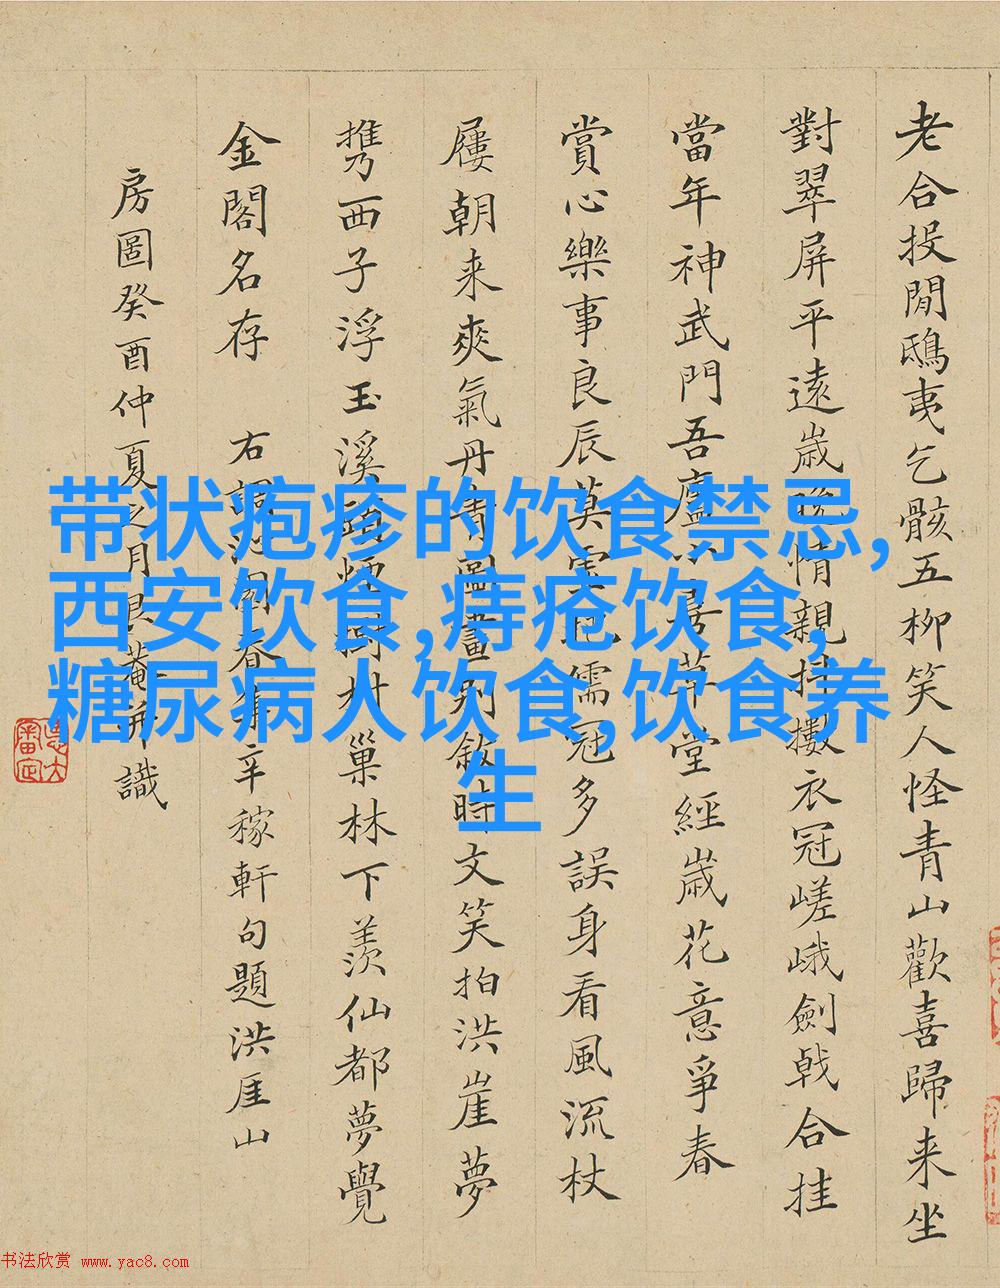 老合投閒鴟夷乞骸五柳笑人怪青山歡喜歸来坐
對翠屏平遠歲晚情親衣冠嵯峨劍戟合挂
當年神武門吾廬居草堂經歲花意爭春
賞心樂事良辰莫儒冠多誤身看風流杖
屨朝来爽氣丹青圖畫別敘時文笑拍洪崖夢
携西子浮玉溪頭煙樹村巢林下羨仙都夢覺
金閣名存 右調沁園春集辛稼軒句題洪厓山
房圖癸酉仲夏之月艮菴并識
带状疱疹的饮食禁忌,
西安饮食,痔疮饮食,
糖尿病人饮食,饮食养
生
书法欣赏 www.yac8.com